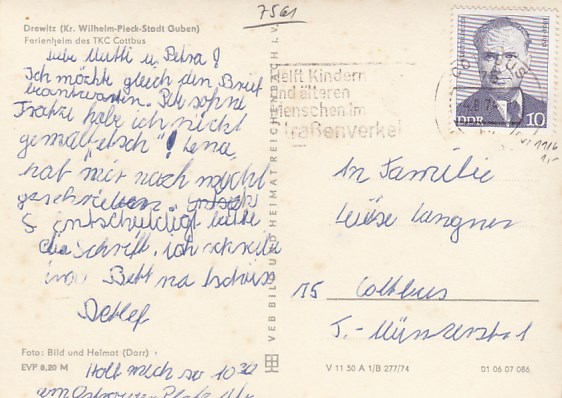 7561
Drewitz (Kr. Wilhelm-Pieck-Stadt Guben)
Ferienheim des TKC Cottbus
Liebe Mutti u. Petra!
Ich möchte gleich den Brief
beantworten.
habe ich nicht
gemalt "etsch"! Lena
hat mir noch nicht
geschrieben.
S entschuldigt bitte
die Schrift, ich schreibe
im Bett na tschüss
Detlef
Foto: Bild und Heimat (Darr)
EVP 0,20 M
Holt mich so 10 30
VEB BILD UND HEIMAT REICHENBACH i. V.
Helft Kindern
und älteren
Menschen im
Straßenverkehr
COTTBUS
DDR 10
An Familie
Cottbus
V 11 50 A 1/B 277/74
01 06 07 086